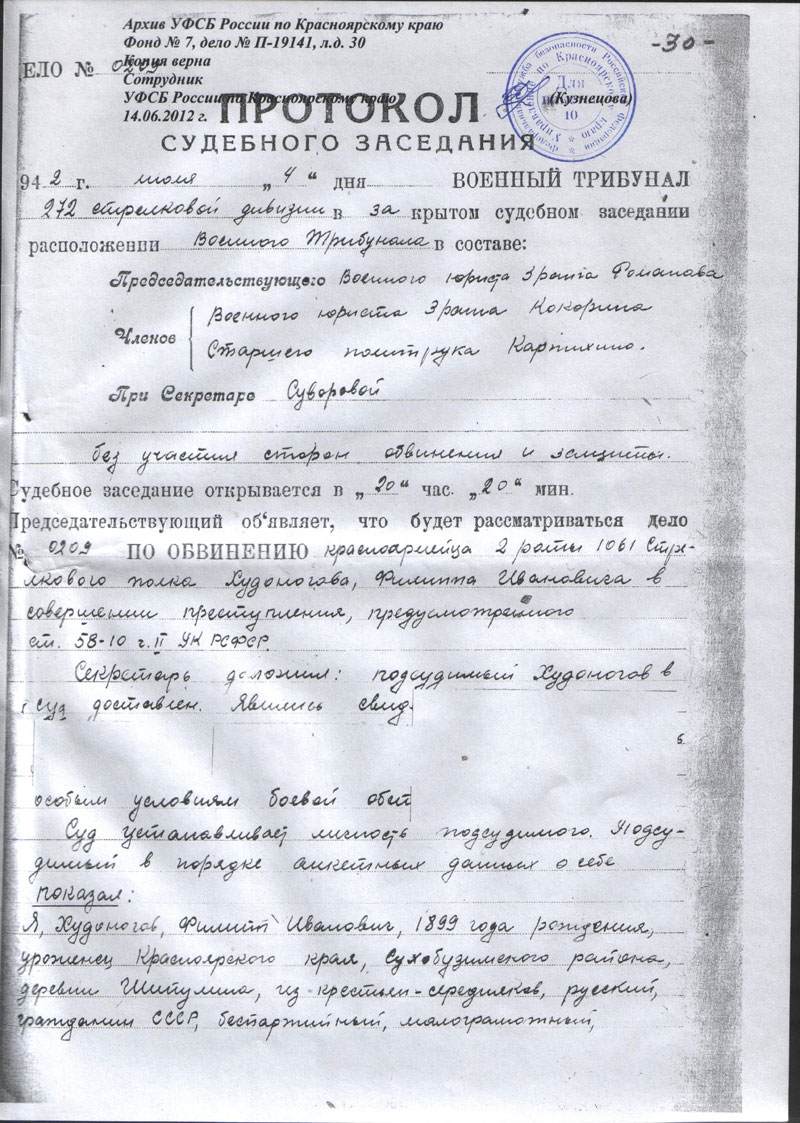 Архив УФСБ России по Красноярскому краю
Фонд № 7, дело № П-19141, л.д. 30
-30-
Копия верна
ЕЛО № 0209
Сотрудник
УФСБ России по Красноярскому краю
(Кузнецова)
14.06.2012 г.
Для
10
ПРОТОКОЛ
СУДЕБНОГО ЗАСЕДАНИЯ
942 г. июля „4“ дня ВОЕННЫЙ ТРИБУНАЛ
272 стрелковой дивизии в закрытом судебном заседании
расположении Военного Трибунала в составе:
Председательствующего Военного юриста 3 ранга Романова
Членов Военного юриста 3 ранга Кокорина
Старшего политрука Карпихино.
При Секретаре Суворовой
без участия сторон обвинения и защиты.
Судебное заседание открывается в „20“ час. „20“ мин.
Председательствующий об'являет, что будет рассматриваться дело
№ 0209 ПО ОБВИНЕНИЮ красноармейца 2 роты 1061 Стре-
лкового полка Худоногова, Филиппа Ивановича в
совершении преступления, предусмотренного
ст. 58-10 ч. II УК РСФСР.
Секретарь доложил: подсудимый Худоногов в
суд доставлен. Явились свид.
особым условиям боевой обст
Суд устанавливает личность подсудимого. Подсу-
димый в порядке анкетных данных о себе
показал:
Я, Худоногов, Филипп Иванович, 1899 года рождения,
уроженец Красноярского края, Сухобузимского района,
деревни Шипулина, из крестьян-середняков, русский,
гражданин СССР, беспартийный, малограмотный,